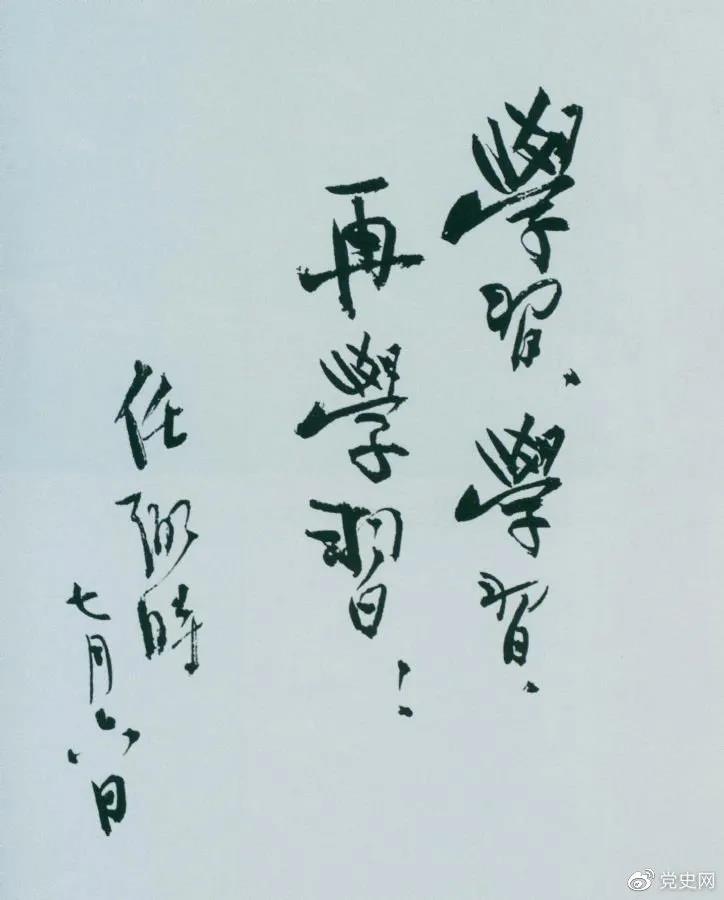 學習、學習、
再學習！
任弼時
七月六日
党史网